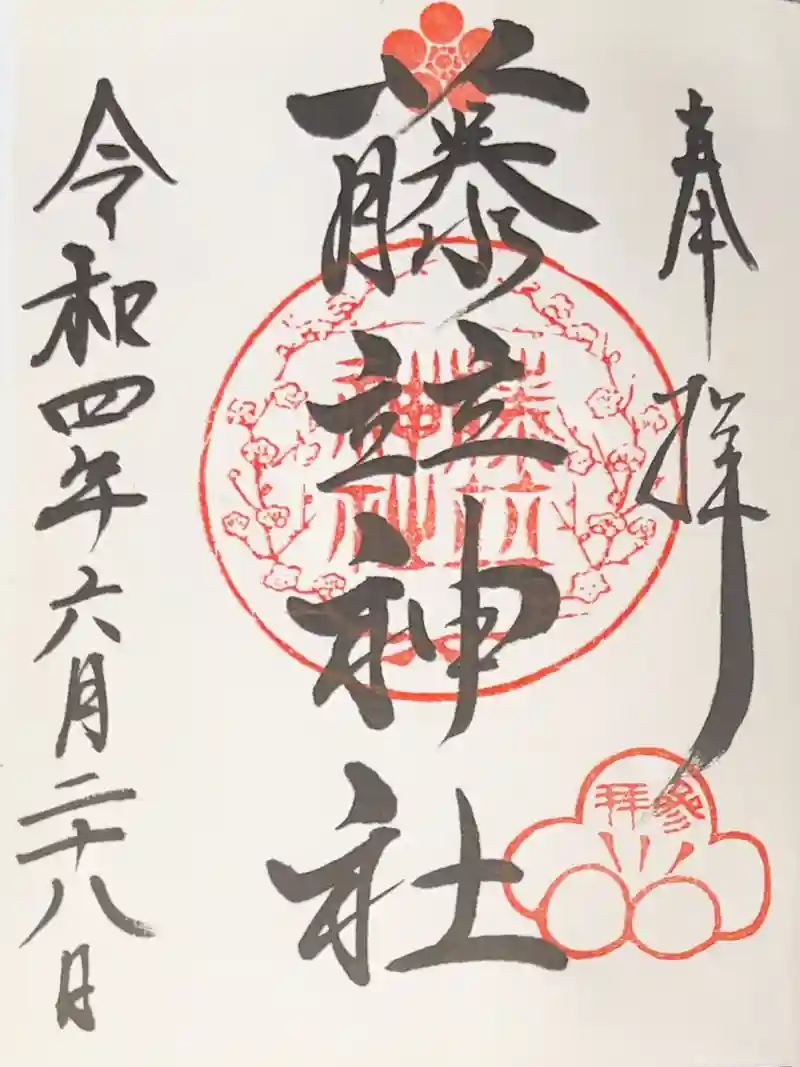 奉拝
參拝
藤竝神社
藤竝神社
令和四年六月二十八日